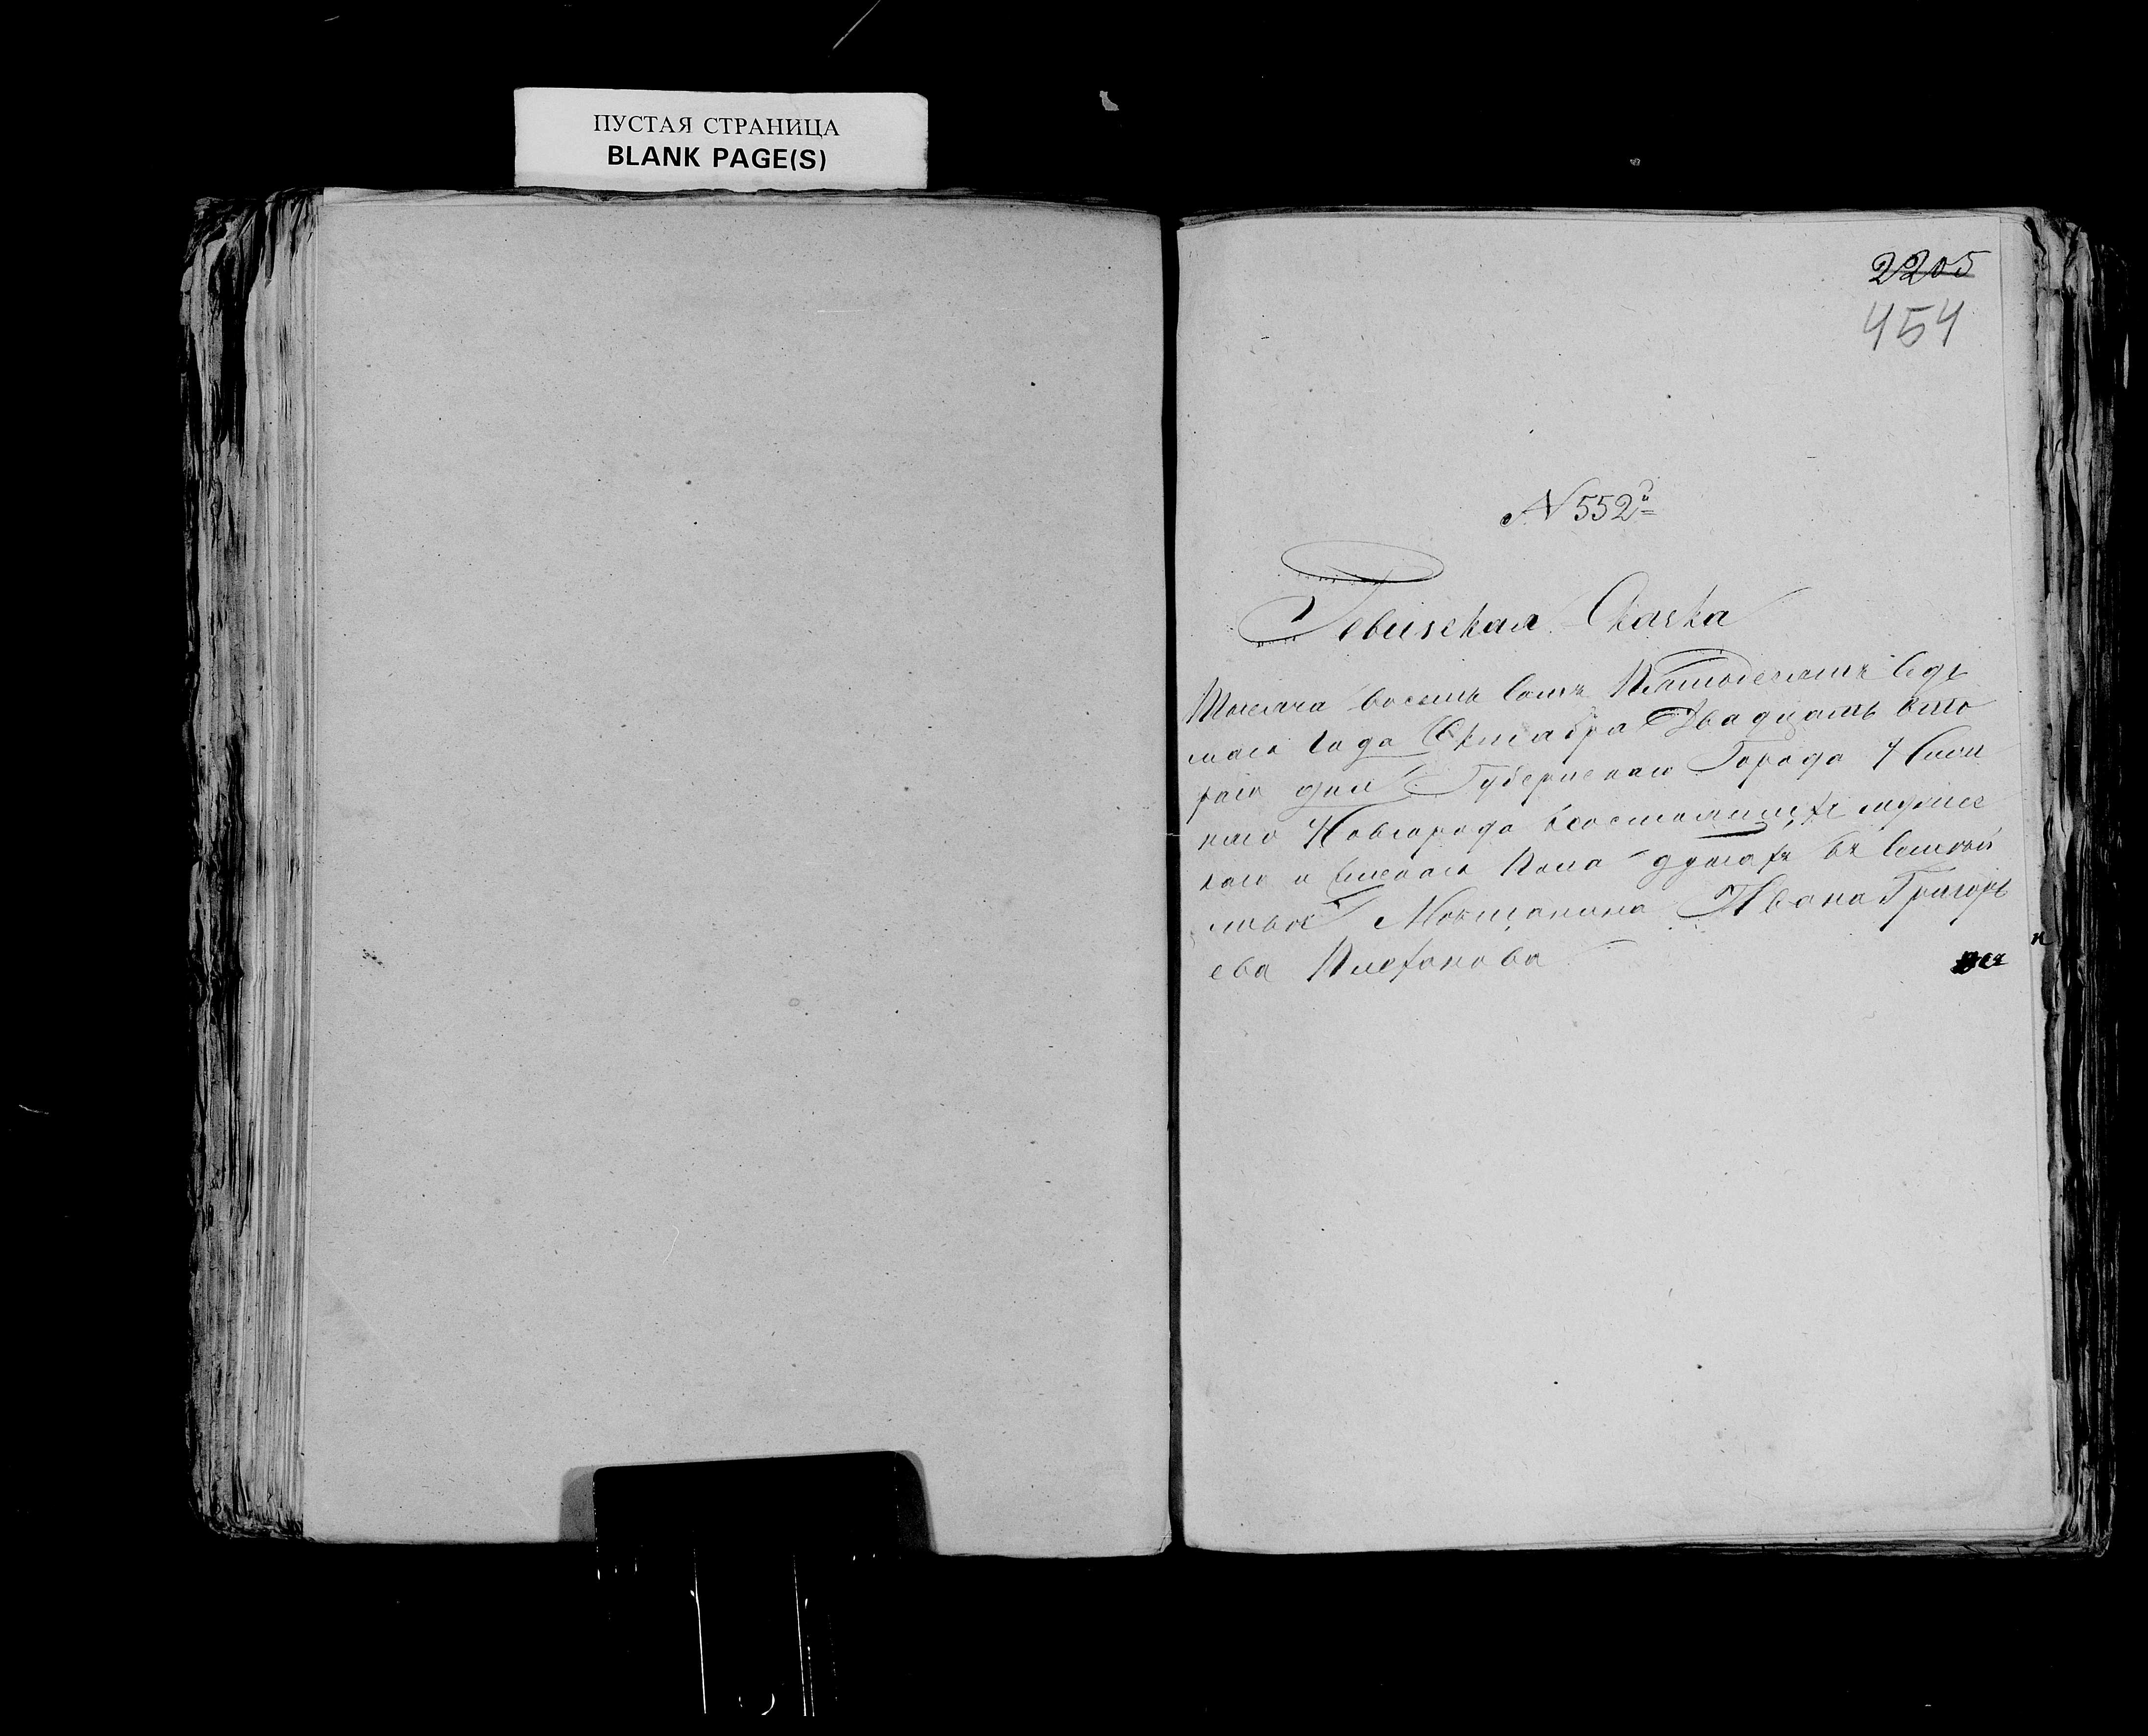 ПУСТАЯ СТРАНИЦА
BLANK PAGE(S)
2205
454
N 552й
Ревизская Сказка
Тысяча восемь сотъ Пятьдесятъ седь
маго года Октября Двадцать вто
раго дня Губернскаго Города Нижн
яго Новгорода о состоящихъ мужес
каго и женскаго пола душахъ въ
Мѣщанина Ивана Григорь
ева